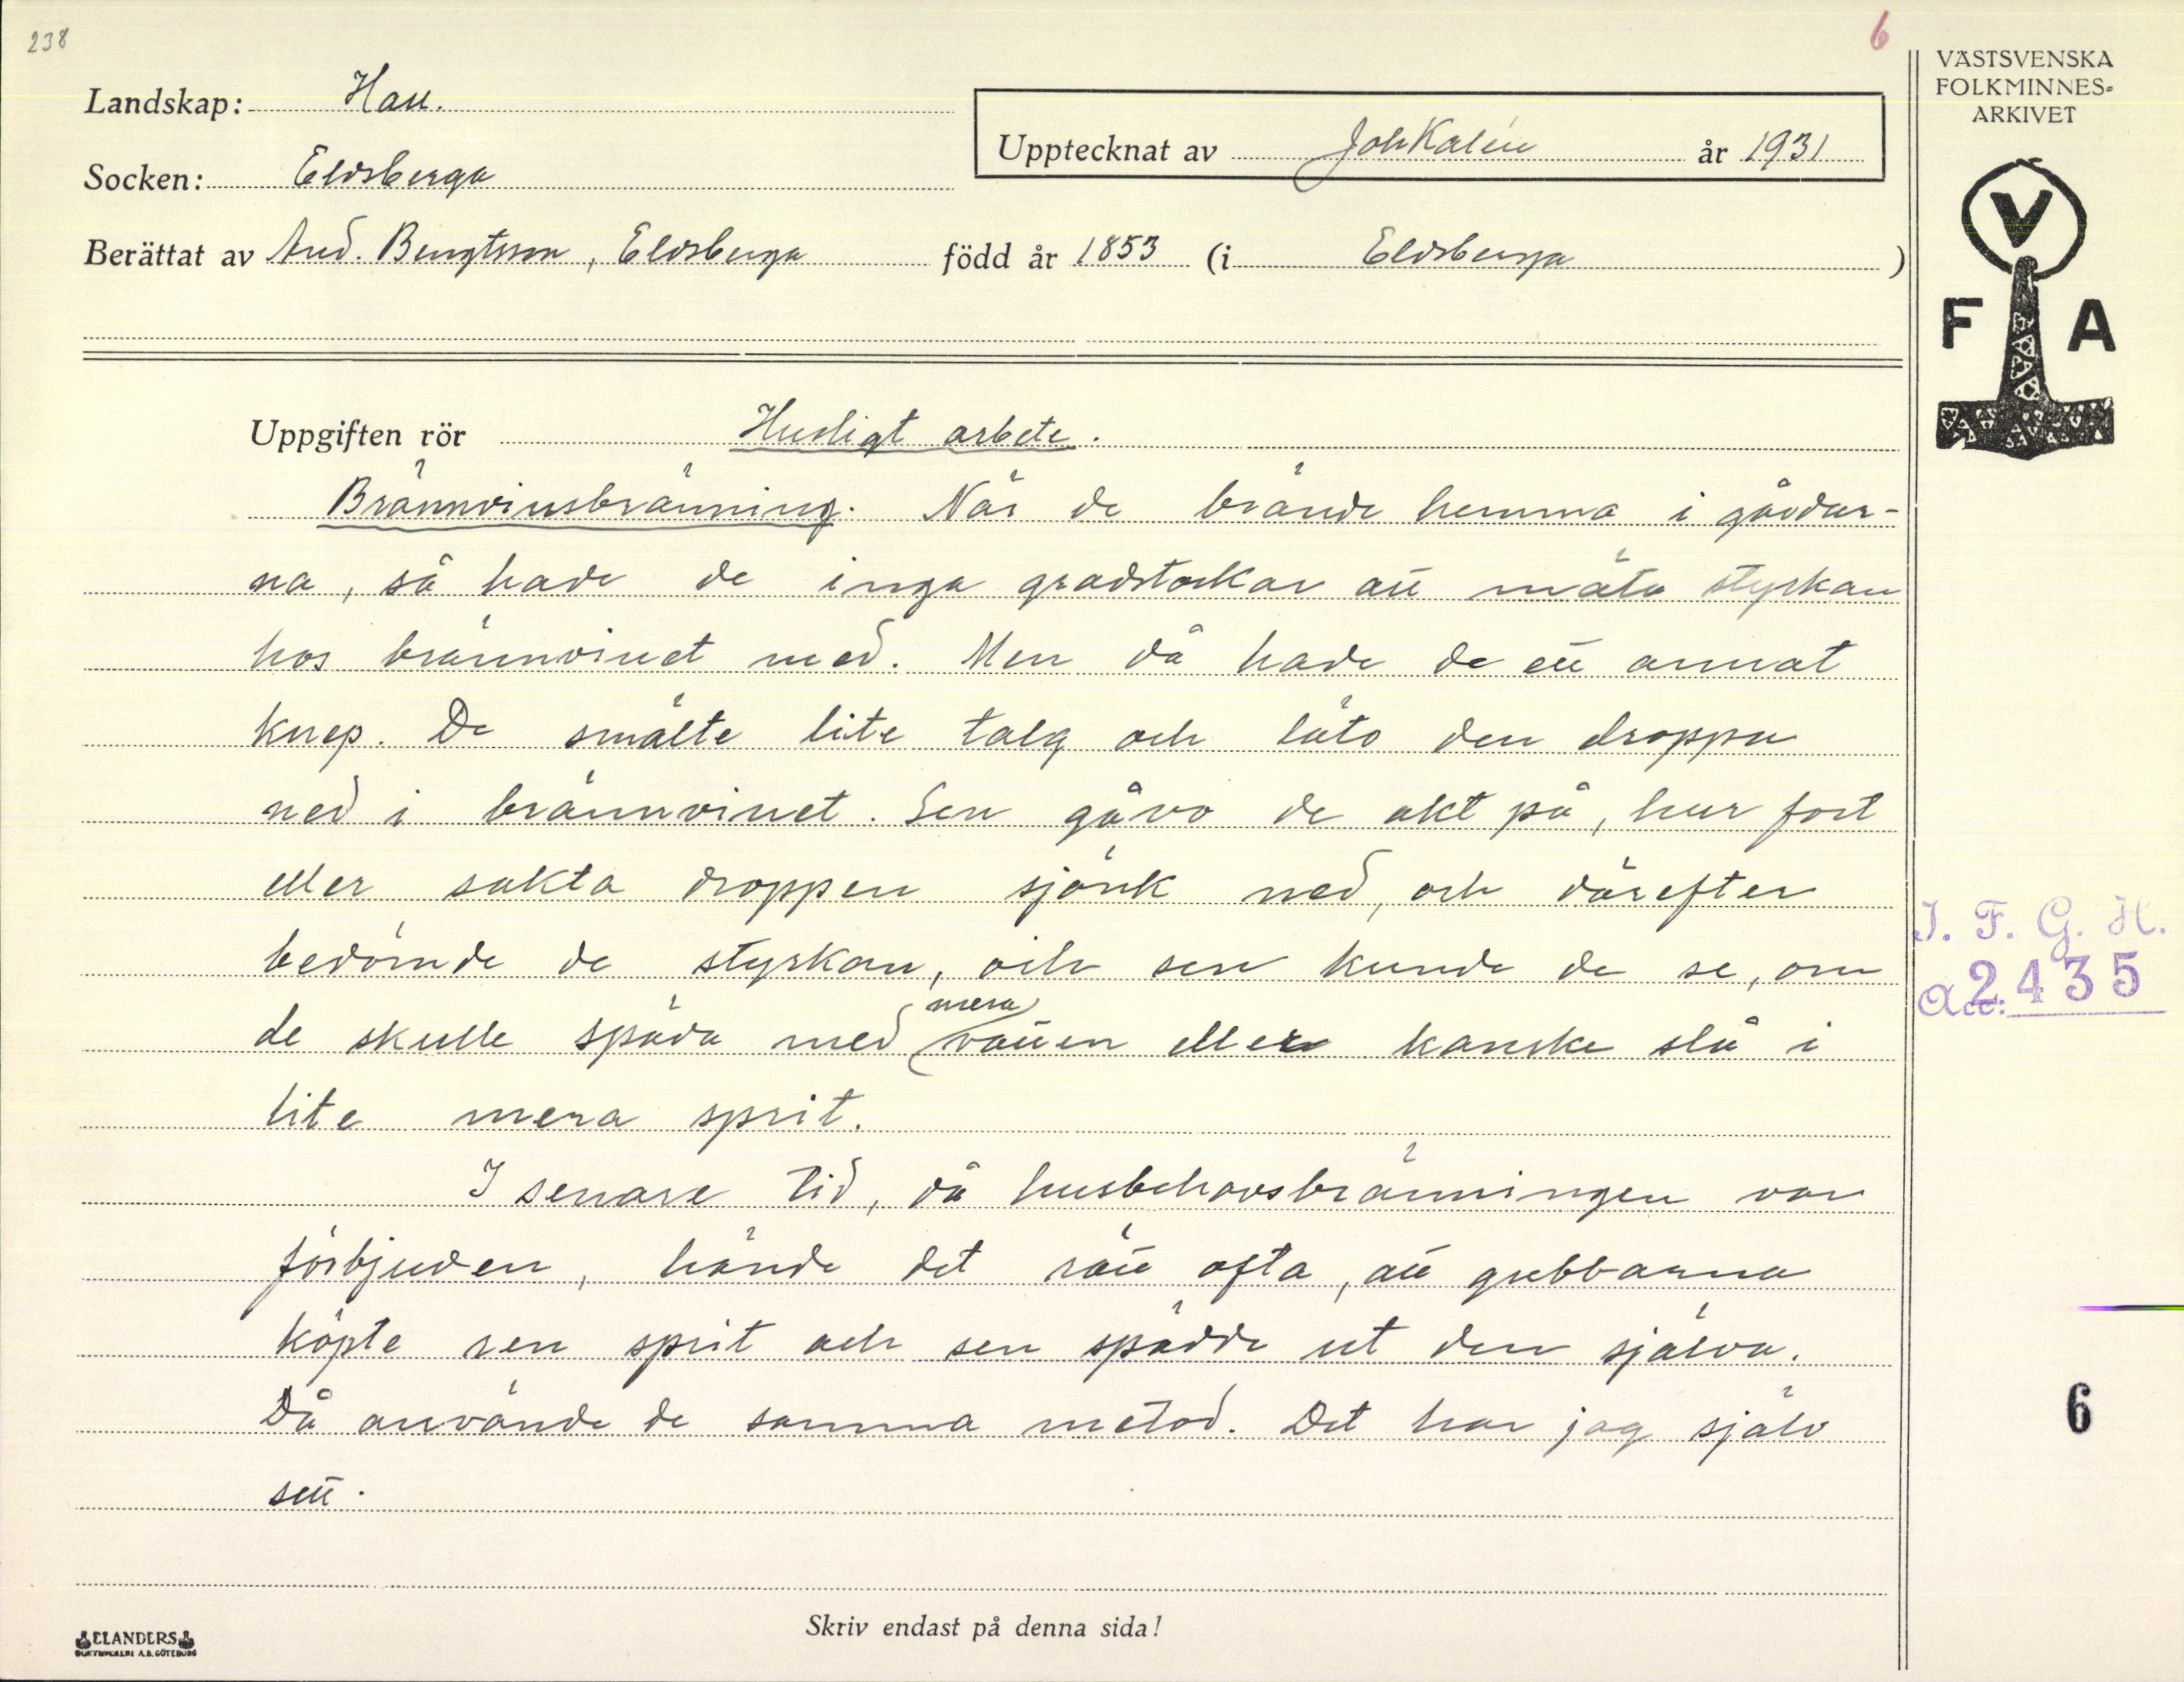 238
6
VÄSTSVENSKA
FOLKMINNES-
ARKIVET
Landskap: Hall.
Upptecknat av Joh Kalén år 1931
Socken: Eldsberga
Berättat av And. Bengtsson, Eldsberga född år 1853 (i Eldsberga)
V
F A
Uppgiften rör Husligt arbete.
Brännvinsbränning. När de brände hemma i gårdar-
na, så hade de inga gradstockar att mäta styrkan
hos brännvinet med. Men då hade de ett annat
knep. De smälte lite talg och läto den droppa
ned i brännvinet. Sen gåvo de akt på, hur fort
eller sakta droppen sjönk ned, och därefter
bedömde de styrkan, och sen kunde de se, om
de skulle späda med mera vatten eller kanske slå i
lite mera sprit.
I senare tid, då husbehovsbränningen var
förbjuden, hände det rätt ofta, att gubbarna
köpte ren sprit och sen spädde ut den själva.
Då använde de samma metod. Det har jag själv
sett.
I. F. G. H.
Acc. 2435
6
Skriv endast på denna sida!
ELANDERS
BOKTRYCKERI A.B. GÖTEBORG